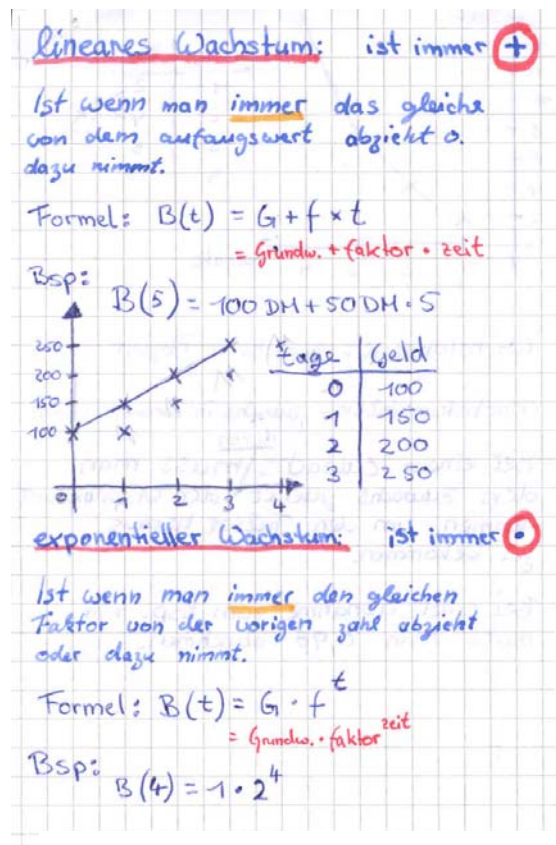 lineares Wachstum: ist immer +
Ist wenn man immer das gleiche
von dem anfangswert abzieht o.
dazu nimmt.
Formel: B(t) = G + f × t
= Grundw. + faktor · zeit
Bsp:
B(5) = 100 DM + 50 DM · 5
250
200
150
100
0 1 2 3 4
tage Geld
0 100
1 150
2 200
3 250
exponentieller Wachstum: ist immer ·
Ist wenn man immer den gleichen
Faktor von der vorigen zahl abzieht
oder dazu nimmt.
Formel: B(t) = G · f^t
= Grundw. · faktor^zeit
Bsp:
B(4) = 1 · 2^4